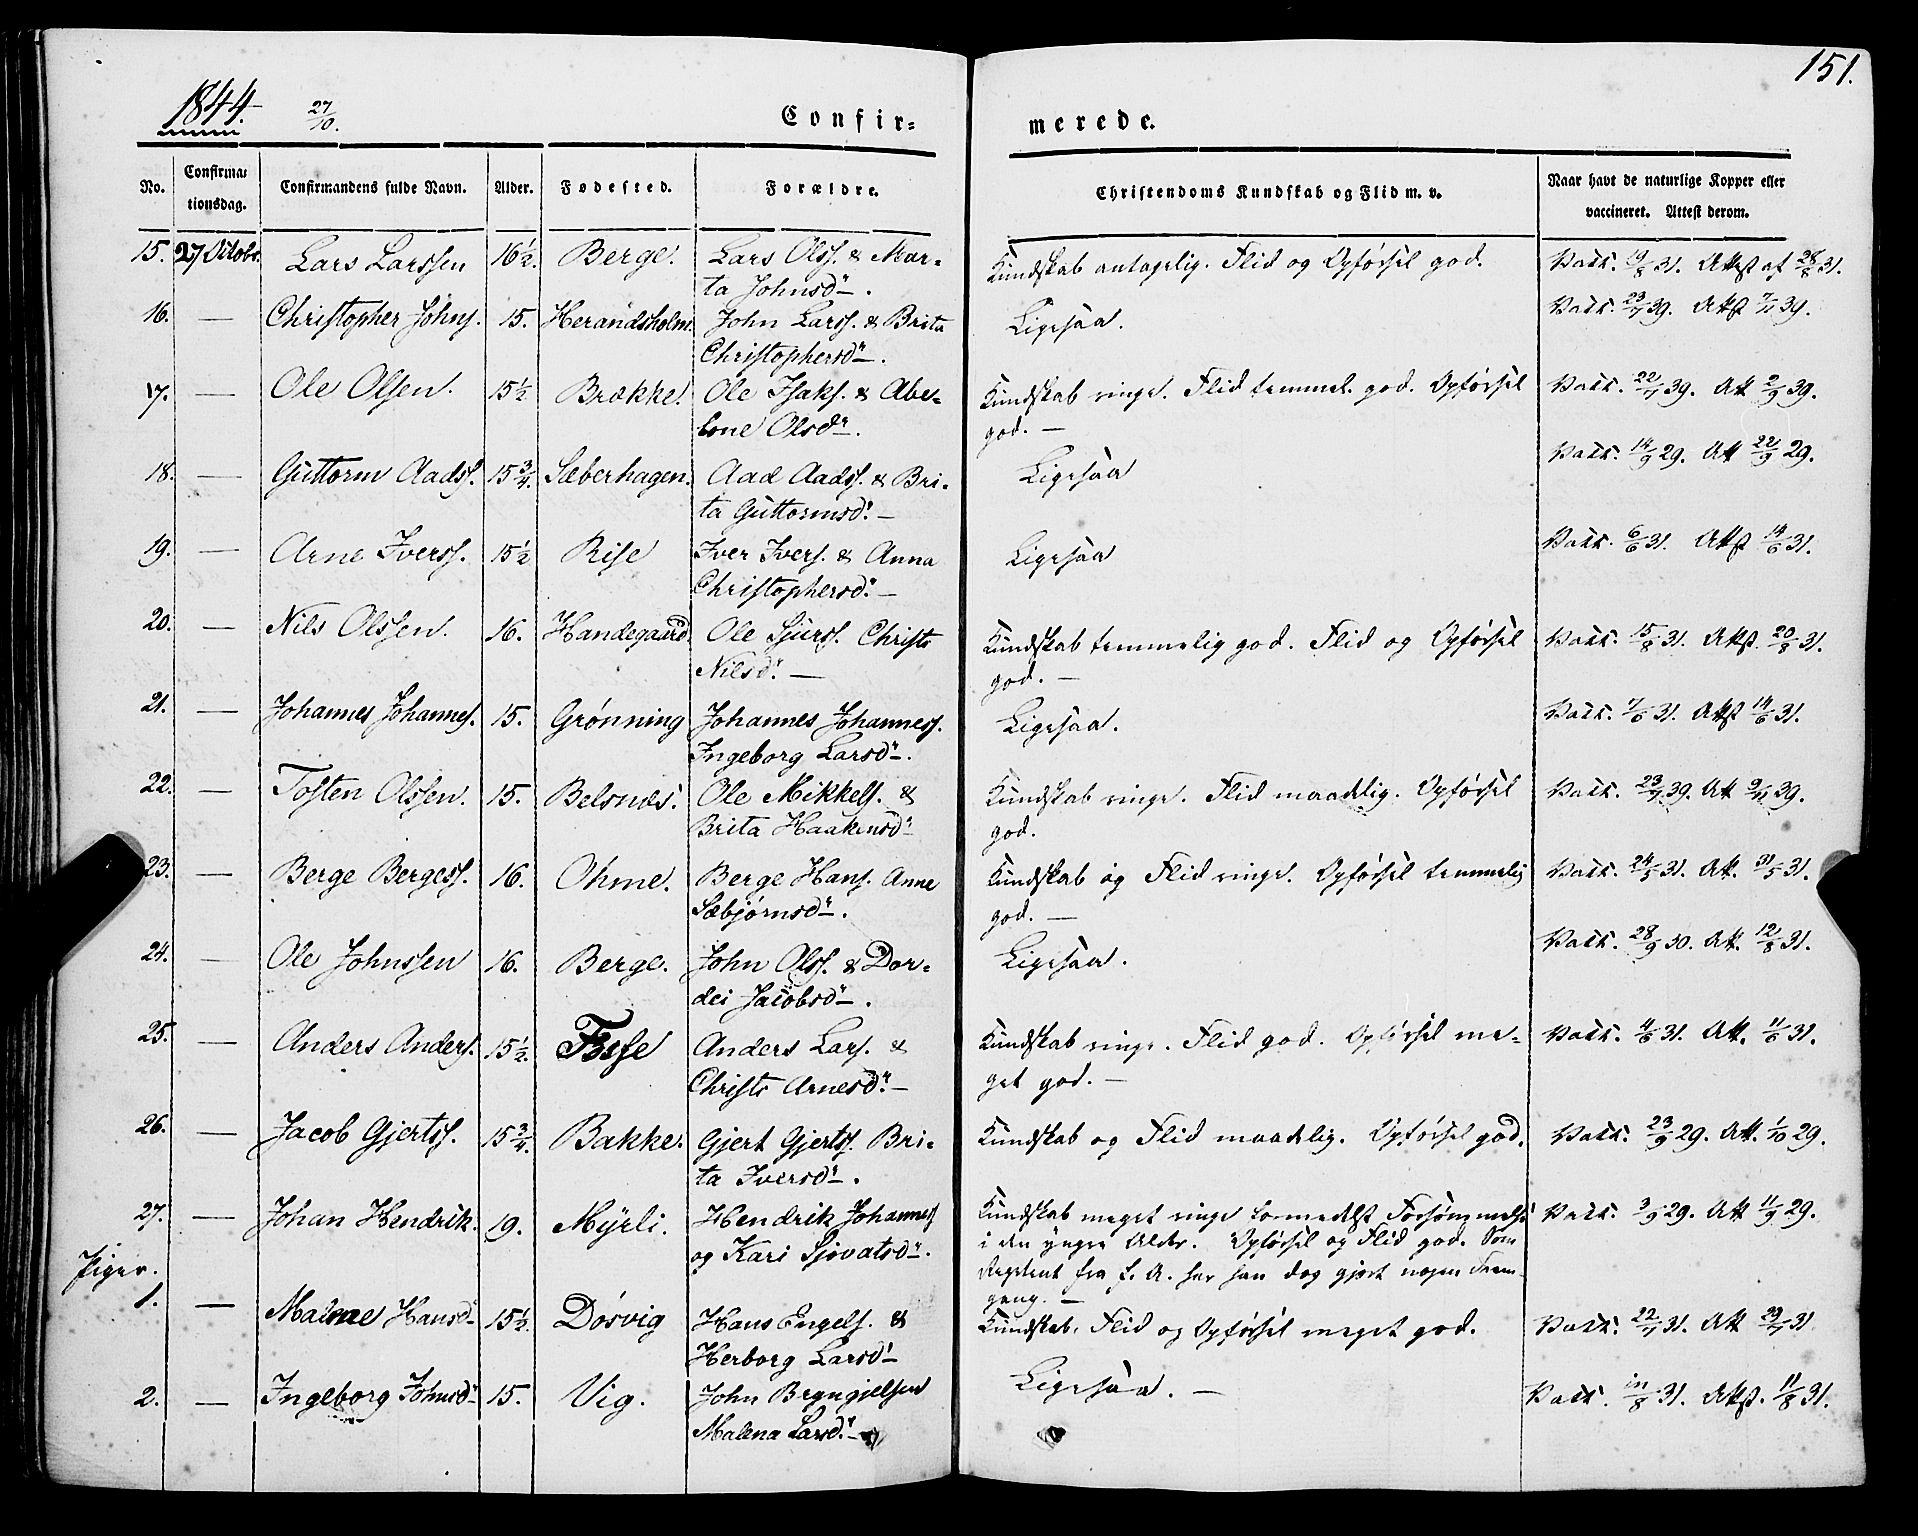 151.
1844. 27/10. Confir= merede.
No. Confirma= tionsdag. Confirmandens fulde Navn. Alder. Fødested. Forældre. Christendoms Kundskab og Flid m. v. Naar havt de naturlige Kopper eller vaccineret. Attest derom.
15. 27 Octobr. Lars Larssen 16½. Berge. Lars Olss. & Mar- Kundskab antagelig. Flid og Opførsel god. Vacc. 19/8 31. Attest af 28/8 31.
ta Johnsdr.
16. — Christopher Johns. 15. Herandsholm. John Larss. & Brita Ligesaa. Vacc. 23/7 39. Attst 39.
Christophersdr.
17. — Ole Olsen. 15½ Brække. Ole Isaks. & Abe- Kundskab ringe. Flid temmel. god. Opførsel Vacc. 22/7 39. Att 2/9 39.
lone Olsdr. god. —
18. — Guttorm Aadss. 15¾. Sæberhagen. Aad Aadss. & Bri- Ligesaa Vacc. 14/9 29. Att 22/9 29.
ta Guttormsdr. —
19. — Arne Iverss. 15½ Rise Iver Ivers. & Anna Ligesaa Vacc. 6/6 31. Attst 14/6 31.
Christophersdr. —
20. — Nils Olssen. 16. Handegaard. Ole Sjurss. Christi Kundskab temmelig god. Flid og Opførsel Vacc. 15/8 31. Attst. 20/8 31.
Nilsdr. — god. —
21. — Johannes Johannes. 15. Grønning Johannes Johanness. Ligesaa. Vacc. 7/6 31. Attst 14/6 31.
Ingeborg Larsdr.
22. — Tosten Olssen. 15. Belsnæs. Ole Mikkels. & Kundskab ringe. Flid maadelig. Opførsel Vacc. 23/7 39. Att 39.
Brita Haakensdr god.
23. — Berge Bergess. 16. Ohme. Berge Hans. Anne Kundskab og Flid ringe. Opførsel temmelig Vacc. 24/5 31. Att. 31/5 31.
Sæbjørnsdr. god. —
24. — Ole Johnssen 16. Berge. John Olss. & Dor- Ligesaa. Vacc. 28/9 30. Att. 12/8 31.
dei Jacobsdr.
25. — Anders Anders. 15½. Fosse Anders Lars. & Kundskab ringe. Flid god. Opførsel me- Vacc. 4/6 31. Att. 11/6 31.
Christi Arnesdr. — get god. —
26. — Jacob Gjertss. 15¾. Bakke. Gjert Gjertss. Bri- Kundskab og Flid maadelig. Opførsel god. Vacc. 23/9 29. Att. 1/10 29.
ta Iversdr.
27. — Johan Hendrik. 19. Myrli. Hendrik Johannes Kundskab meget ringe formedelst Forsømmelse Vacc. 3/9 29. Att 11/9 29.
og Kari Sjovatsdr. i den yngre Alder. Opførsel og Flid god. Som
Piger. Reptent fra f. A. har han dog gjort nogen Frem-
gang. —
1. — Malene Hansdr 15½. Dosvig Hans Engels. & Kundskab, Flid og Opførsel meget god. Vacc. 22/7 31. Att 29/7 31
Herborg Larsdr
2. — Ingeborg Johnsdr 15. Vig. John Bryngjelsen Ligesaa. — Vacc. 31. Attst. 11/8 31.
Malena Larsdr. —